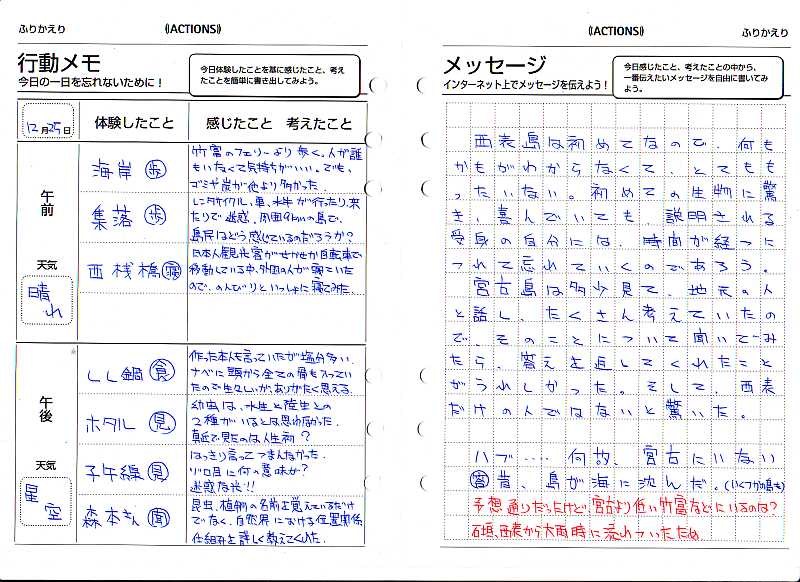 ふりかえり
((ACTIONS))
行動メモ
今日の一日を忘れないために！
今日体験したことを基に感じたこと、考え
たことを簡単に書き出してみよう。
12月25日
体験したこと
感じたこと 考えたこと
午前
天気
晴れ
海岸 歩
竹富のフェリーより歩く。人が誰
もいなくて気持ちがいい。でも、
ゴミや炭が他より多かった。
集落 歩
レンタサイクル、車、水牛が行たり、来
たりで迷惑。周囲9kmの島で、
島民はどう感じているのだろうか？
西桟橋
日本人観光客がせかせか自転車で
移動している中、外国の人が寝ていた
ので、のんびりといっしょに寝てみた。
午後
天気
星空
しし鍋 食
作った本人も言っていたが塩分多い。
ナベに頭から全ての骨も入ってい
たので生々しいが、ありがたく思える。
ホタル 見
幼虫は、水生と陸生との
2種がいるとは思わなかった。
真近で見たのは人生初？
子午線 見
はっきり言ってつまんなかった。
ソロ目に何の意味が？
迷惑な光!!
森本さん 聞
昆虫、植物の名前を覚えているだけ
でなく、自然界における位置関係
仕組みを詳しく教えてくれた。
((ACTIONS))
ふりかえり
メッセージ
インターネット上でメッセージを伝えよう！
今日感じたこと、考えたことの中から、
一番伝えたいメッセージを自由に書いてみ
よう。
西表島は初めてなので、何も
かもがわからなくて、とてもも
ったいない。初めての生物に驚
き、喜んでいても、説明される
受身の自分には、時間が経つに
つれて忘れていくのであろう。
宮古島は多少見て、地元の人
と話し、たくさん考えていたの
で、そのことについて聞いてみ
たら、答えを返してくれたこと
がうれしかった。そして、西表
だけの人ではないと驚いた。
ハブ…‥何故、宮古にいない
答 昔、島が海に沈んだ。(いくつかの島も)
予想通りだったけど、宮古より低い竹富などにいるのは？
石垣、西表から大雨時に流れついたため